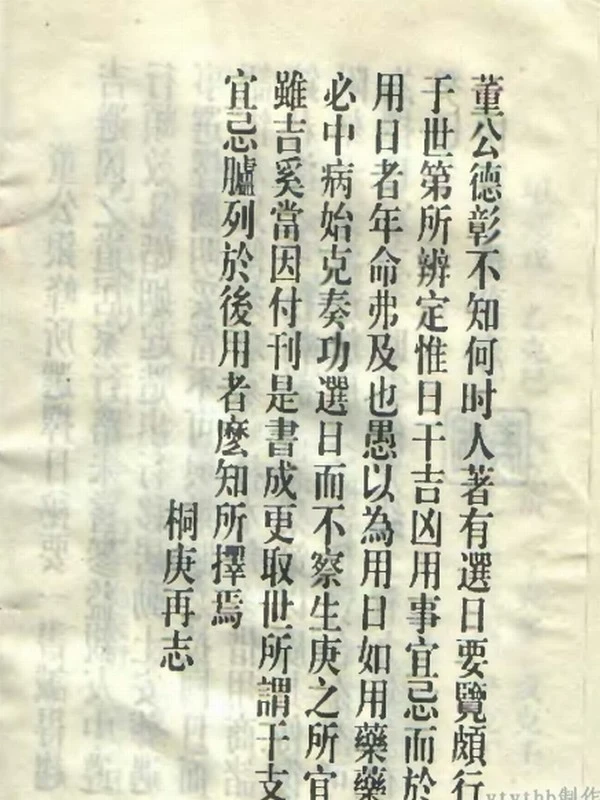 董公德彰不知何时人著有選日要覽頗行
于世第所辨定惟日干吉凶用事宜忌而於
用日者年命弗及也愚以為用日如用藥藥
必中病始克奏功選日而不察生庚之所宜
雖吉奚當因付刊是書成更取世所謂干支
宜忌臚列於後用者麽知所擇焉
桐庚再志